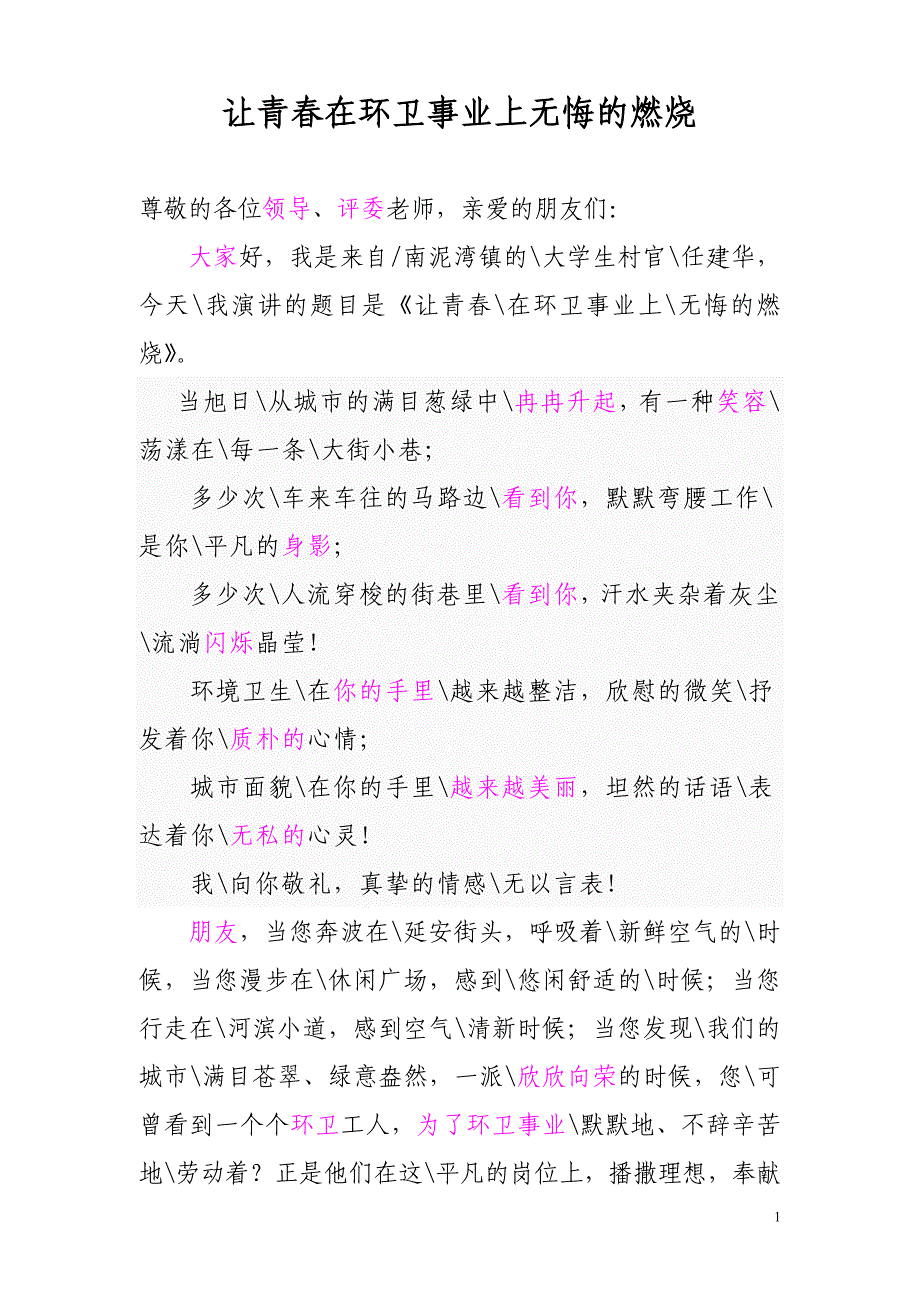 让青春在环卫事业上无悔的燃烧
尊敬的各位领导、评委老师，亲爱的朋友们：
大家好，我是来自/南泥湾镇的\大学生村官\任建华，
今天\我演讲的题目是《让青春\在环卫事业上\无悔的燃
烧》。
当旭日\从城市的满目葱绿中\冉冉升起，有一种笑容\
荡漾在\每一条\大街小巷；
多少次\车来车往的马路边\看到你，默默弯腰工作\
是你\平凡的身影；
多少次\人流穿梭的街巷里\看到你，汗水夹杂着灰尘
\流淌闪烁晶莹！
环境卫生\在你的手里\越来越整洁，欣慰的微笑\抒
发着你\质朴的心情；
城市面貌\在你的手里\越来越美丽，坦然的话语\表
达着你\无私的心灵！
我\向你敬礼，真挚的情感\无以言表！
朋友，当您奔波在\延安街头，呼吸着\新鲜空气的\时
候，当您漫步在\休闲广场，感到\悠闲舒适的\时候；当您
行走在\河滨小道，感到空气\清新时候；当您发现\我们的
城市\满目苍翠、绿意盎然，一派\欣欣向荣的时候，您\可
曾看到一个个环卫工人，为了环卫事业\默默地、不辞辛苦
地\劳动着？正是他们在这\平凡的岗位上，播撒理想，奉献
1